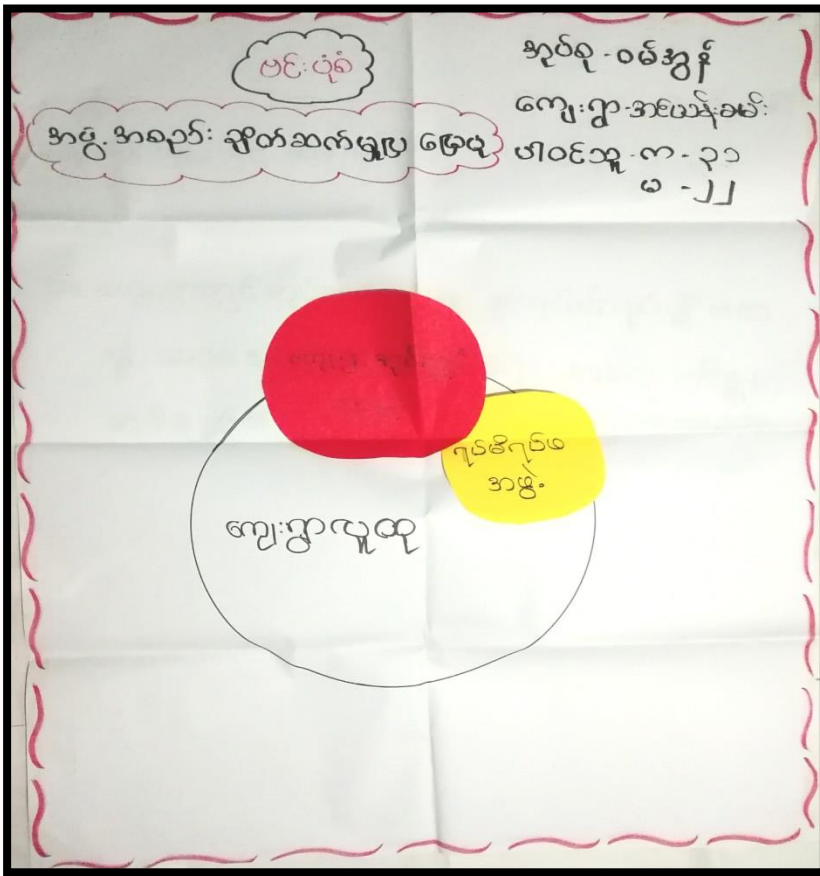 ဗင်းပုံစံ
အဖွဲ့အစည်း ချိတ်ဆက်မှုပြ မြေပုံ
အုပ်စု - ဝမ်အွန်
ကျေးရွာ - အင်ယန်းခမ်း
ပါဝင်သူ - ကျ - ၃၁
မ - ၂၂
ရပ်မိရပ်ဖ
အဖွဲ့
ကျေးရွာလူထု